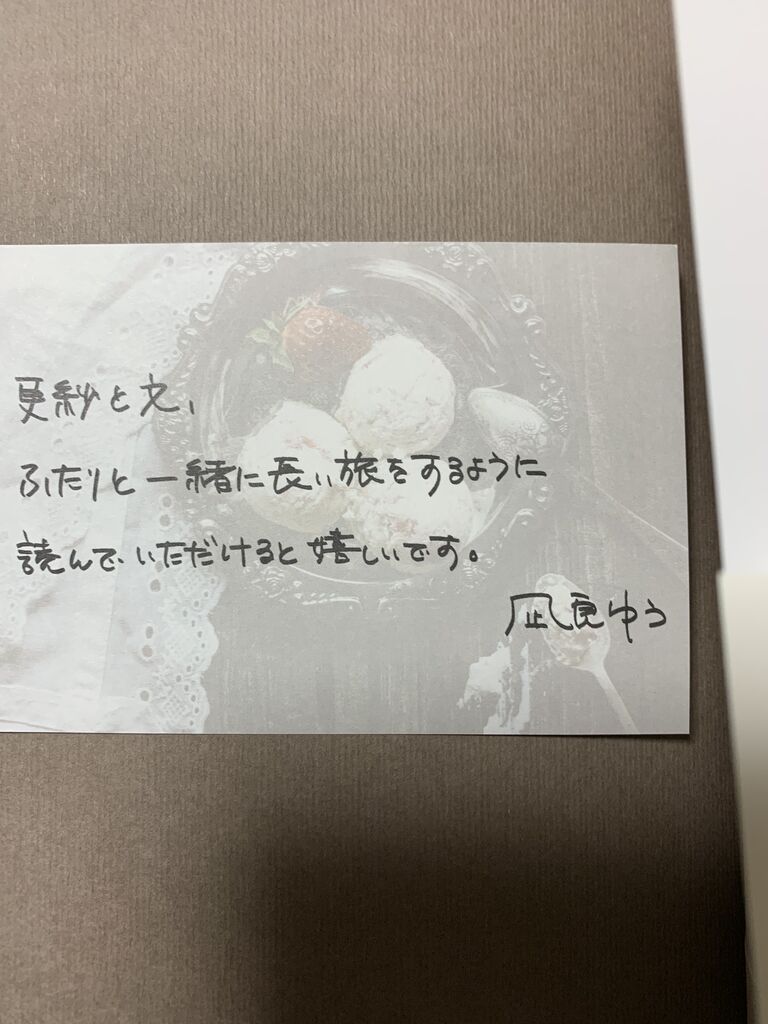 更紗と文、
ふたりと一緒に長い旅をするように
読んでいただけると嬉しいです。
凪良ゆう